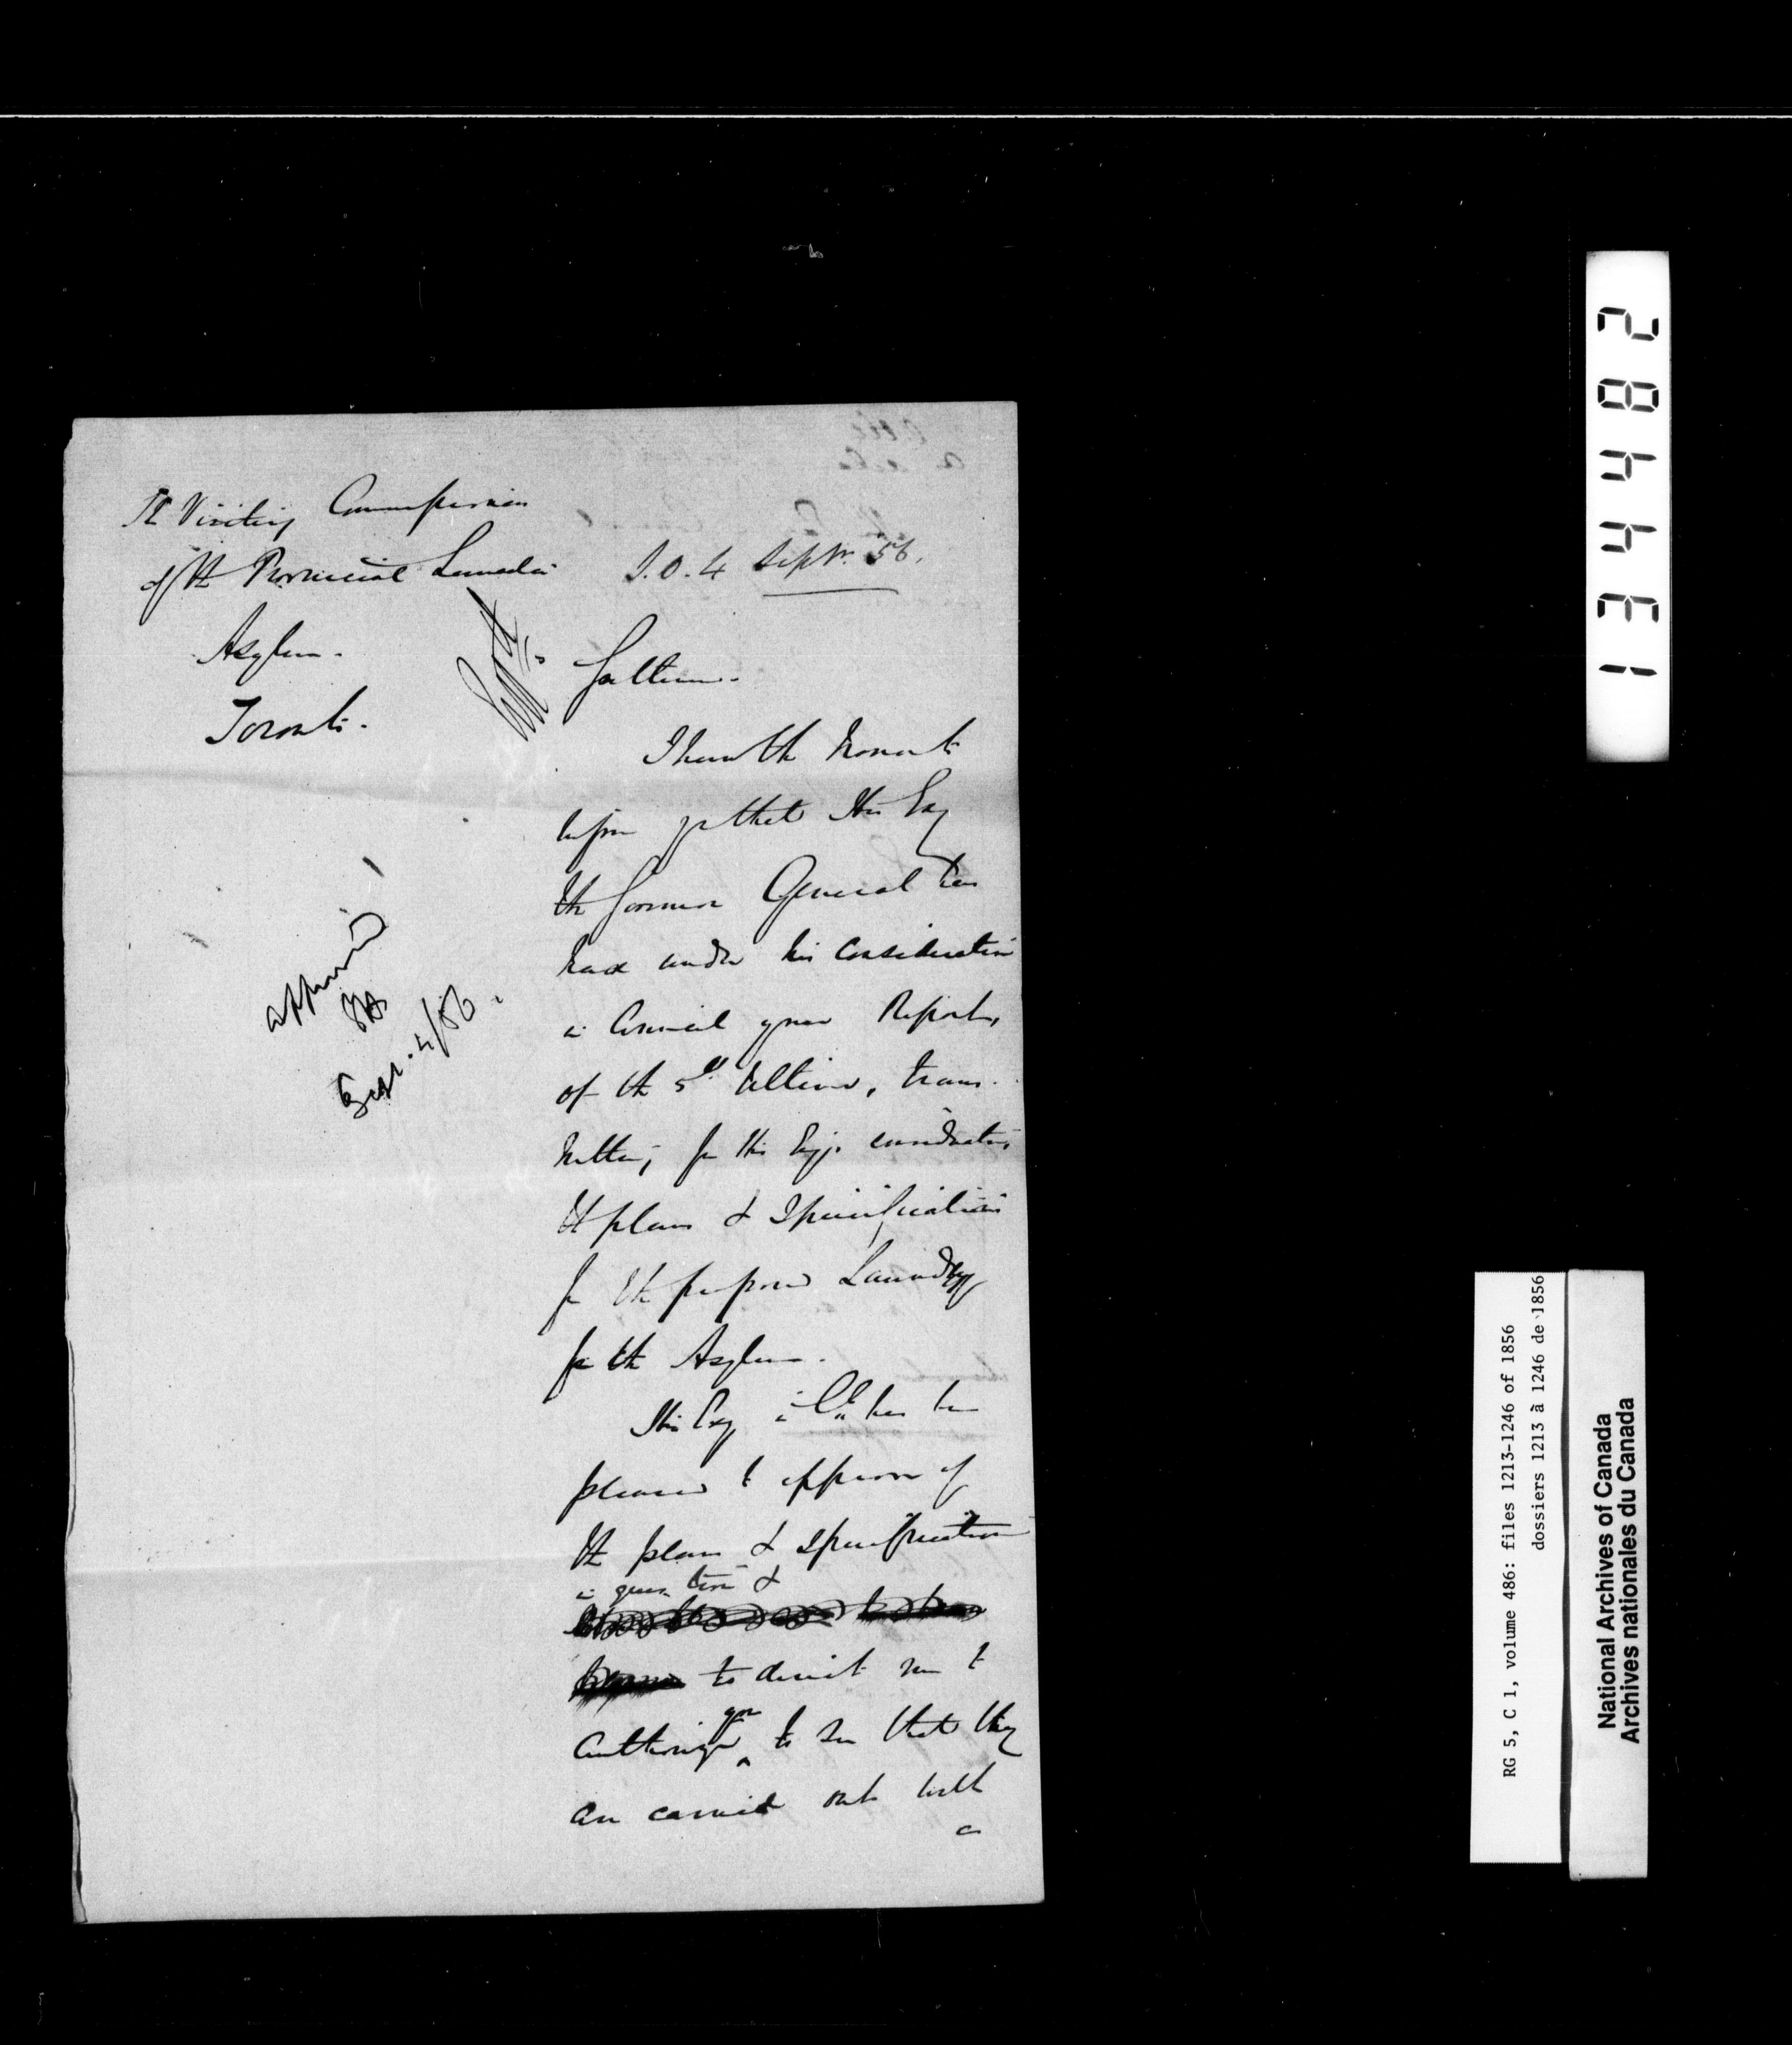 The Visiting Commissioners
of the Provincial Lunatic
Asylum.
Toronto.
S.O. 4 Septr. 56.
Gentlemen.
I have the honor to
inform you that His Exy
the Governor General has
had under his consideration
in Council your Report,
of the 5th Ultimo, trans-
mitting, for His Exys. consideration,
the plans & Specifications
for the proposed Laundry
for the Asylum.
His Exy in Cl. has been
pleased to approve of
the plans & Specification
in question &
to direct me to
authorize you to see that they
are carried out with
a
approved
Sept. 4/56.
284431
RG 5, C 1, volume 486: files 1213-1246 of 1856
dossiers 1213 à 1246 de 1856
National Archives of Canada
Archives nationales du Canada